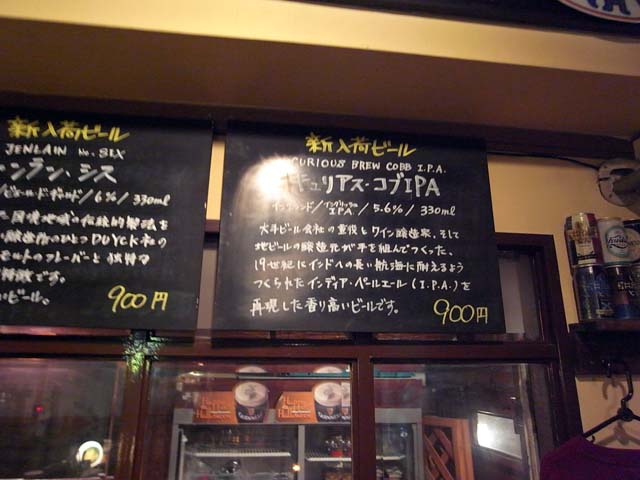 新入荷ビール
JENLAIN No. SIX
ンラン・シス
/6%/330ml
DUYCK社の
モルトのフレーバーと 独特の
特徴です。
ビール。
900円
新入荷ビール
CURIOUS BREW COBB I.P.A.
キュリアス・コブIPA
イングランド/イングリッシュIPA/5.6%/330ml
大手ビール会社の重役とワイン醸造家、そして
地ビールの醸造元が手を組んでつくった、
19世紀にインドへの長い航海に耐えるよう
つくられたインディア・ペールエール(I.P.A.)を
再現した香り高いビールです。
900円